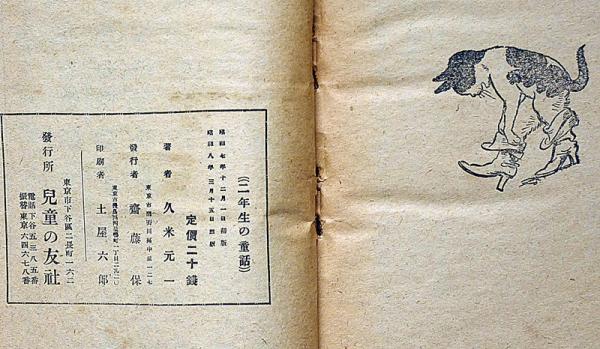 (二年生の童話)
昭和七年十二月一日初版
昭和八年三月十五日四版
定價二十錢
著者 久米元一
發行者 齋藤保
印刷者 土屋六郎
發行所 兒童の友社
東京市下谷區二長町一六二
電話下谷五三八五番
振替東京六四六七八番